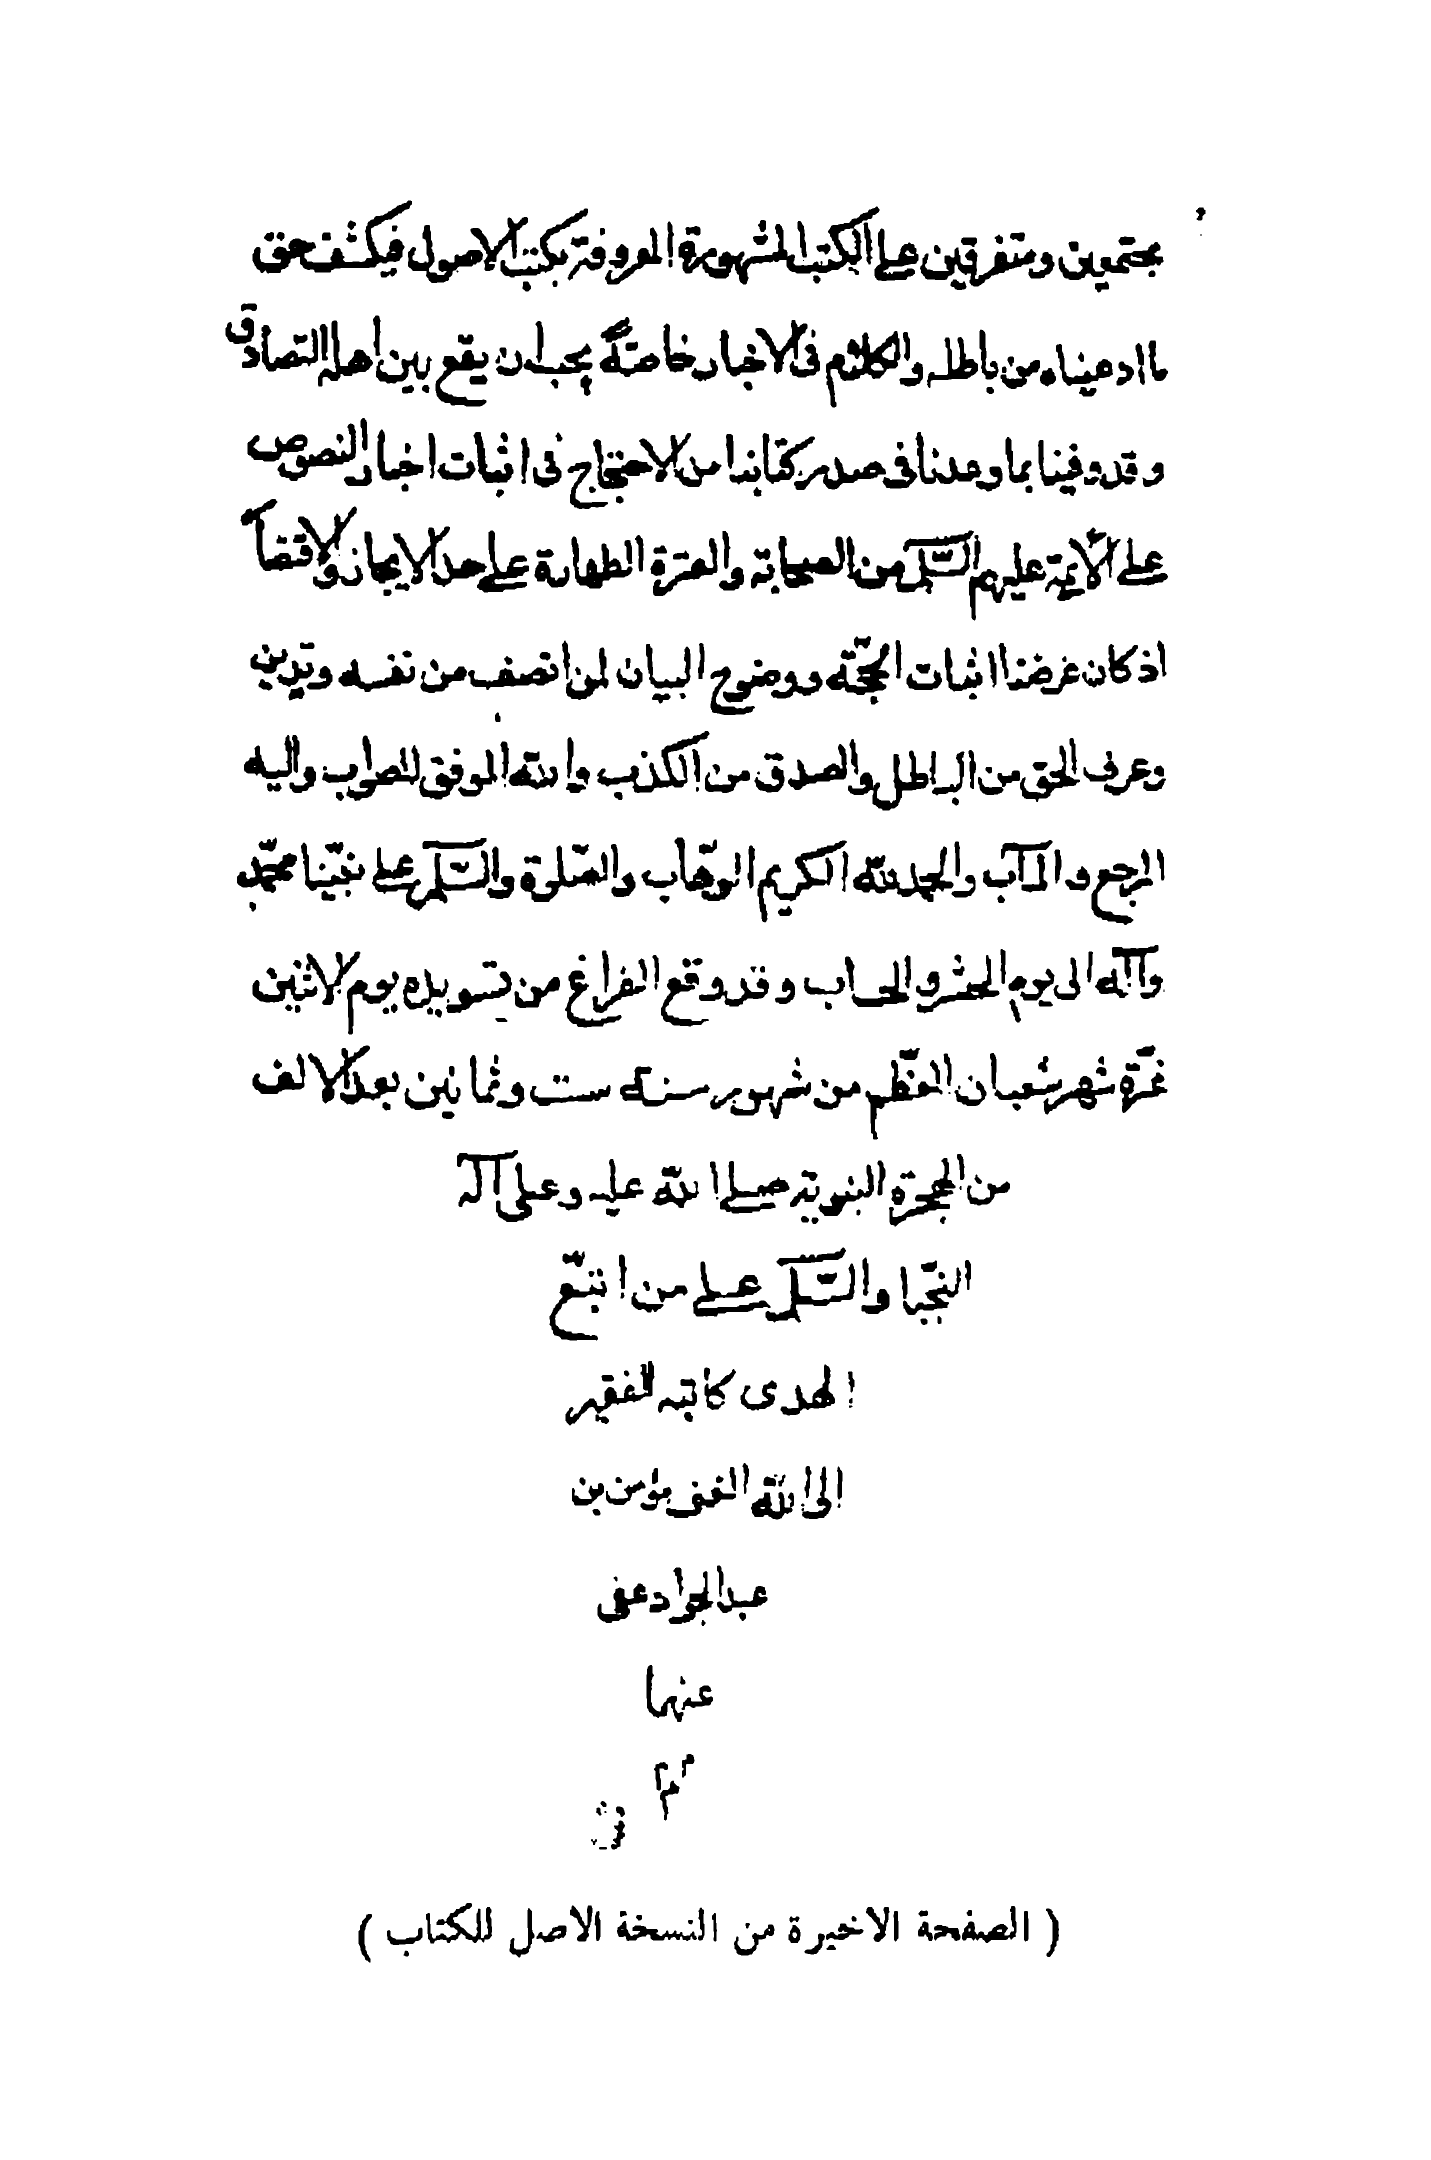 مجتمعين ومتفرقين على الكتب المشهورة المعروفة بكتب الاصول فيكشف حق
ما ادعيناه من باطله والكلام في الاخبار خاصّة يجب ان يقع بين اهل التصادق
وقد وفينا بما وعدنا في صدر كتابنا من الاحتجاج في اثبات اخبار النصوص
على الأيمة عليهم السّلم من الصحابة والعترة الطهارة على حد الايجاز والاقتضا
اذ كان غرضنا اثبات الحجّة ووضوح البيان لمن انصف من نفسه وتدين
وعرف الحق من الباطل والصدق من الكذب والله الموفق للصواب واليه
المرجع و المآب والحمد لله الكريم الوهّاب والصّلوة والسّلم على نبيّنا محمّد
وآله الى يوم الحشر والحساب وقد وقع الفراغ من تسويده يوم الاثنين
غرّة شهر شعبان المعظّم من شهور سنة ست وثمانين بعد الالف
من الهجرة النبوية صلى الله عليه وعلى آله
النجبا والسّلم على من اتبّع
الهدى كاتبه الفقير
الى الله الغنى مؤمن بن
عبد الجواد عفى
عنهما
( الصفحة الاخيرة من النسخة الاصل للكتاب )